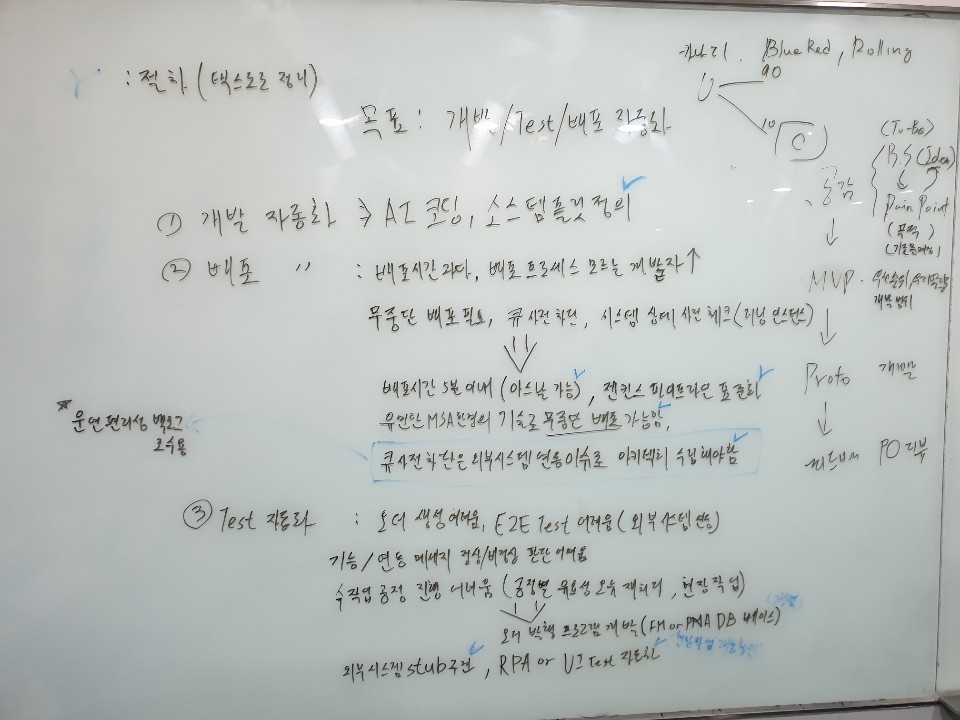 : 절차 (텍스트로 정리)
목표 : 개발/Test/배포 자동화
① 개발 자동화 → AI 코딩, 소스템플릿 정의
② 배포 〃 : 배포시간 과다, 배포 프로세스 모르는 개발자↑
무중단 배포 필요, 큐 사전 차단, 시스템 상태 사전 체크(러닝 인스턴스)
배포시간 5분 이내 (야스날 가능), 젠킨스 파이프라인 표준화
유연한 MSA환경의 기술로 무중단 배포 가능함,
큐 사전 차단은 외부시스템 연동이슈로 아키텍처 수립해야함
* 운영편리성 백로그
③ Test 자동화 : 오더 생성 어려움, E2E Test 어려움 (외부시스템 연동)
기능/연동 메세지 정상/비정상 판단 어려움
수작업 공정 진행 어려움 (공정별 유효성 오류 재처리, 현장작업)
오더 발행 프로그램 개발 (FM or PNA DB 베이스)
외부시스템 stub 구현, RPA or UI Test 자동화
카나리, Blue Red, Rolling
90
10
U
C
(To-Be)
공감
B.S (Idea)
Pain Point
(목적)
MVP
개발 범위
Proto 개발
PO 리뷰